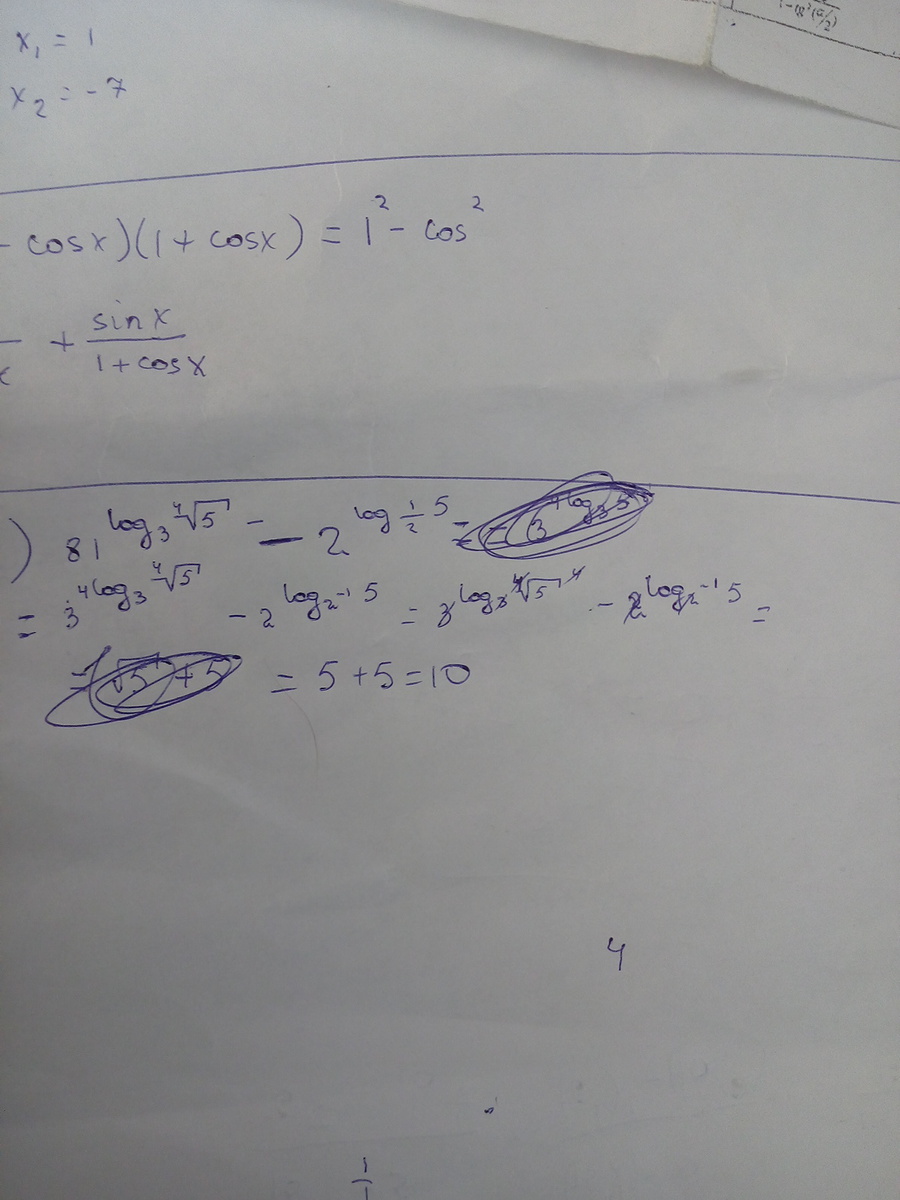 1-cos²(α/2)
x₁ = 1
x₂ = -7
- cosx)(1 + cosx) = 1² - cos²
+ sinx / 1+cosx
) 81^log₃ ⁴√5 - — 2^log 1/2 5 =
= 3^4log₃ ⁴√5 - 2^log₂-1 5 = 3^log₃ ⁴√5 ⁴ - 2^log₂-1 5 =
= 5 + 5 = 10
4
1